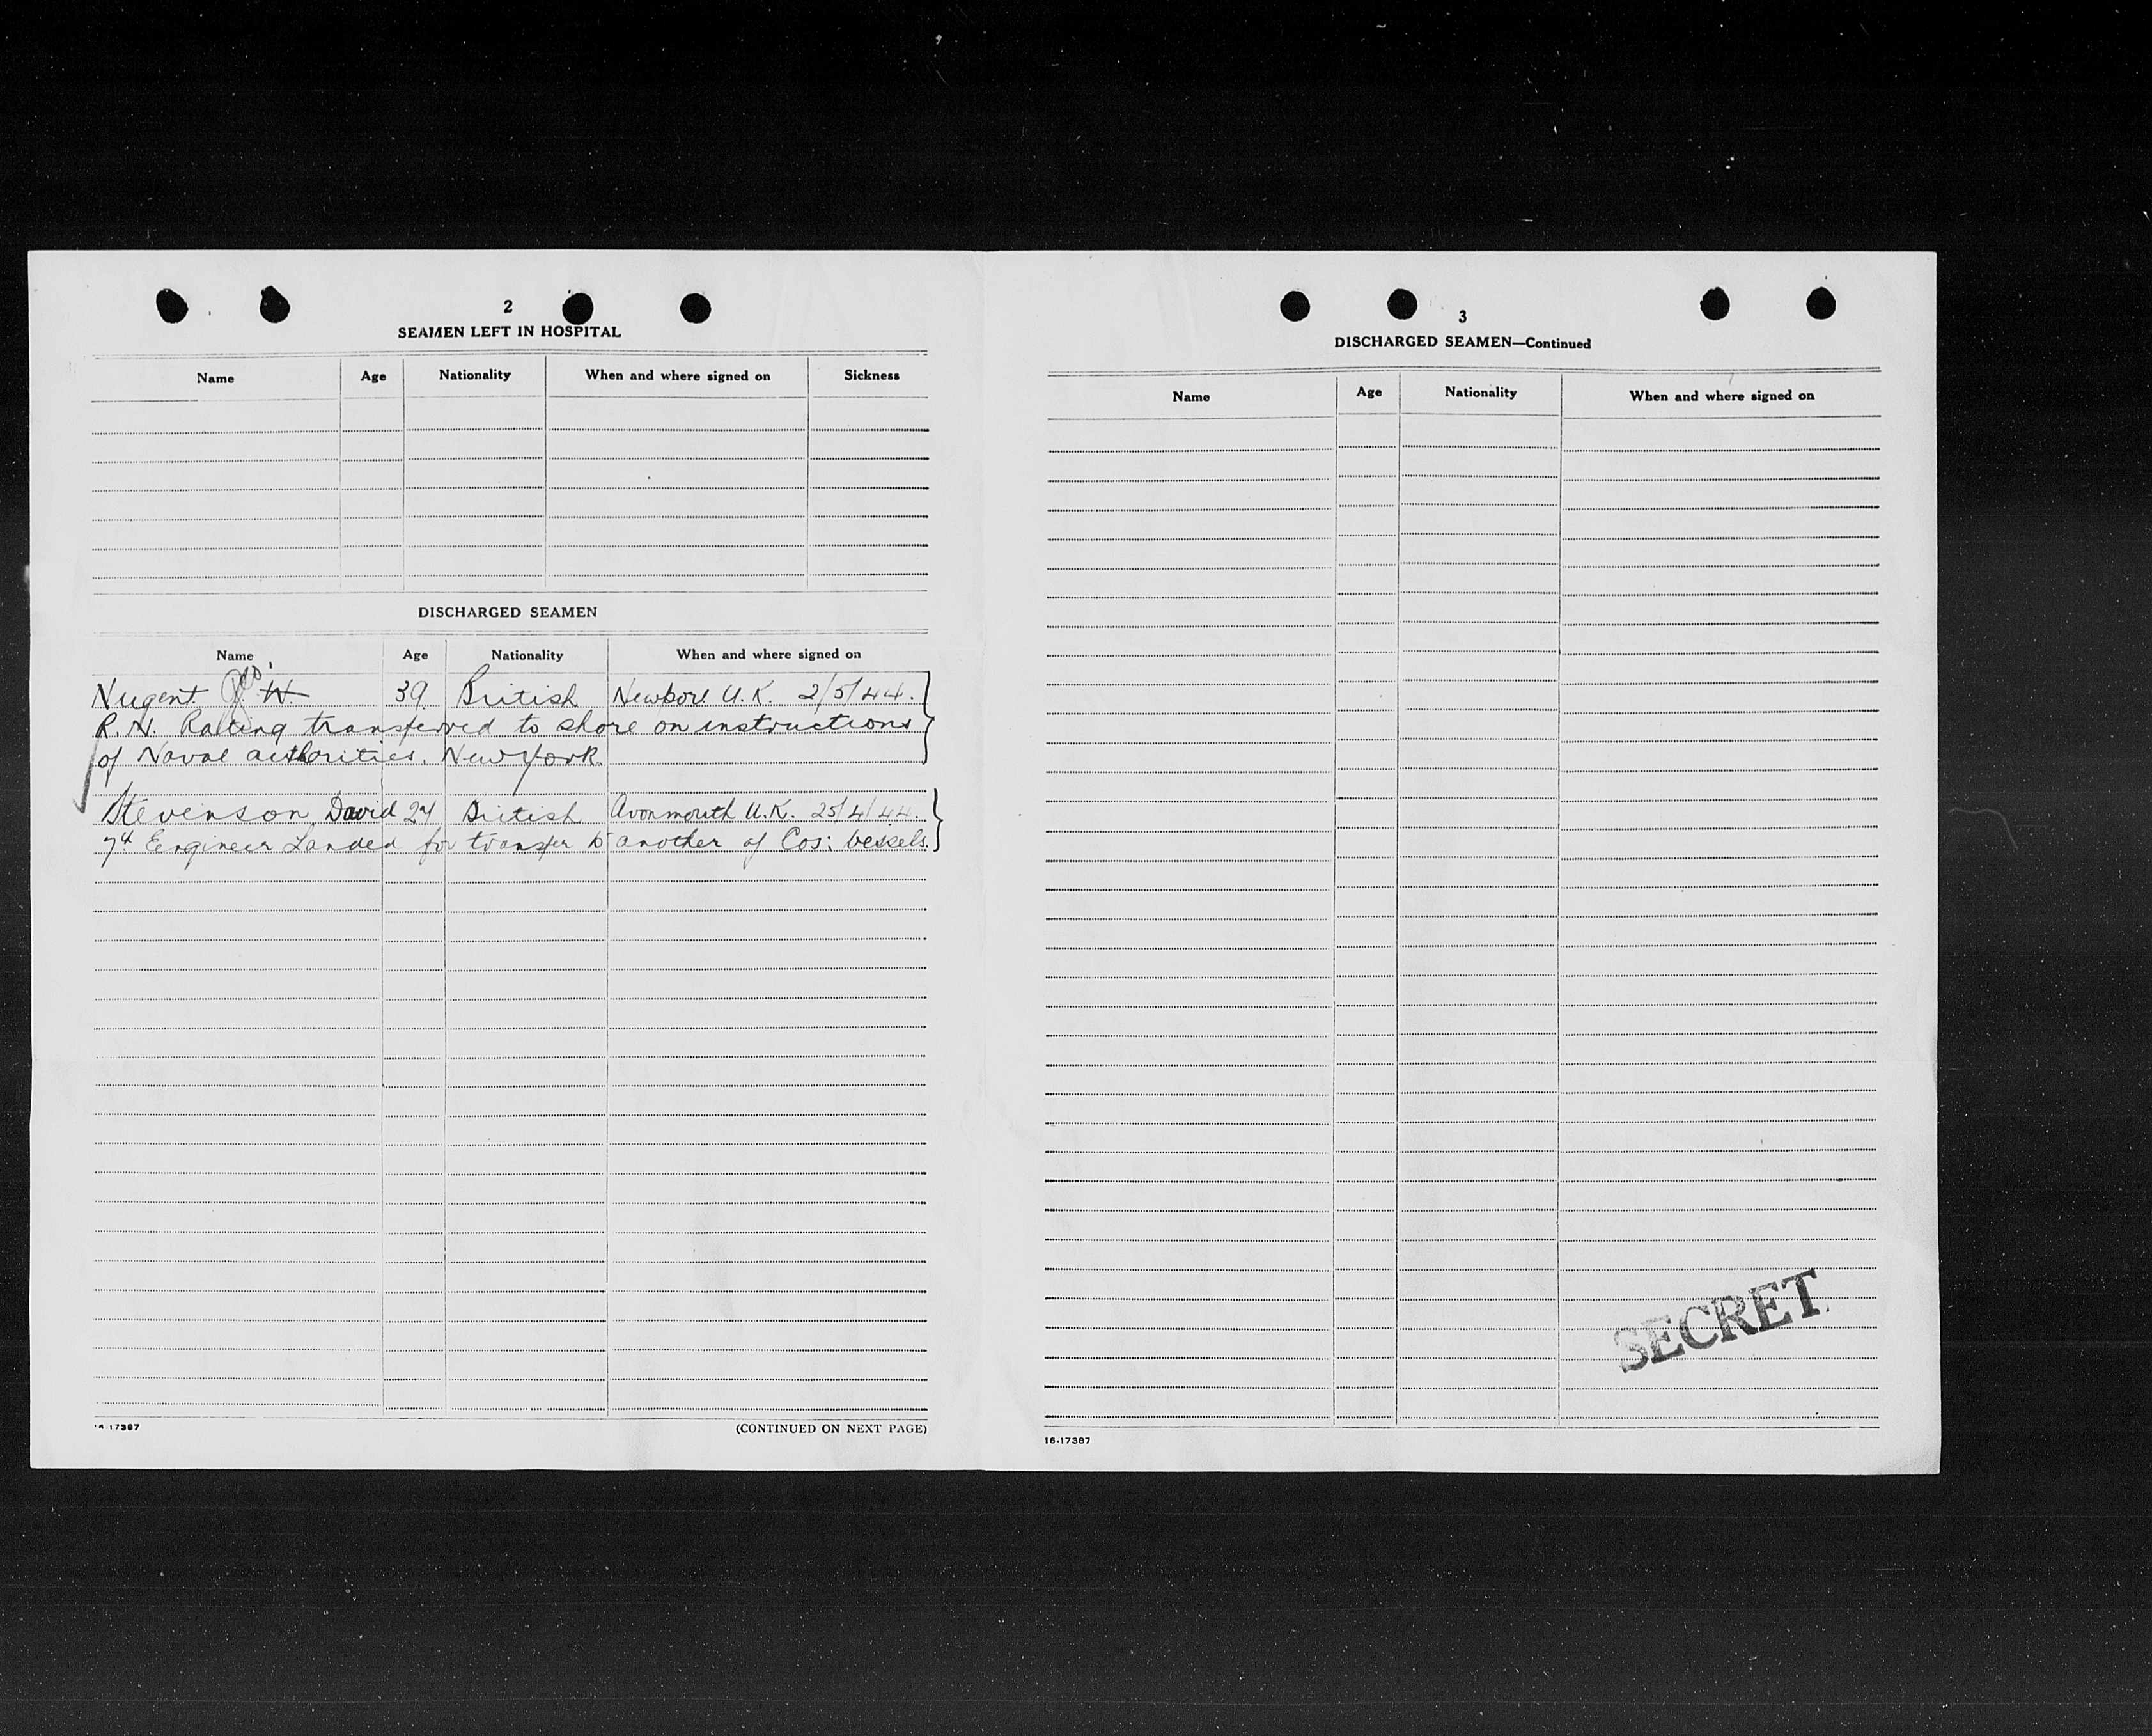 2
SEAMEN LEFT IN HOSPITAL
Name Age Nationality When and where signed on Sickness
DISCHARGED SEAMEN
Name Age Nationality When and where signed on
Nugent Geo. W. 39 British Newport U.K. 2/5/44.
R.N. Rating transferred to shore on instructions
of Naval authorities. New York.
Stevenson, David 24 British Avonmouth U.K. 25/4/44.
7th Engineer Landed for transfer to another of Cos: vessels.
16-17387 (CONTINUED ON NEXT PAGE)
3
DISCHARGED SEAMEN—Continued
Name Age Nationality When and where signed on
SECRET
16-17387